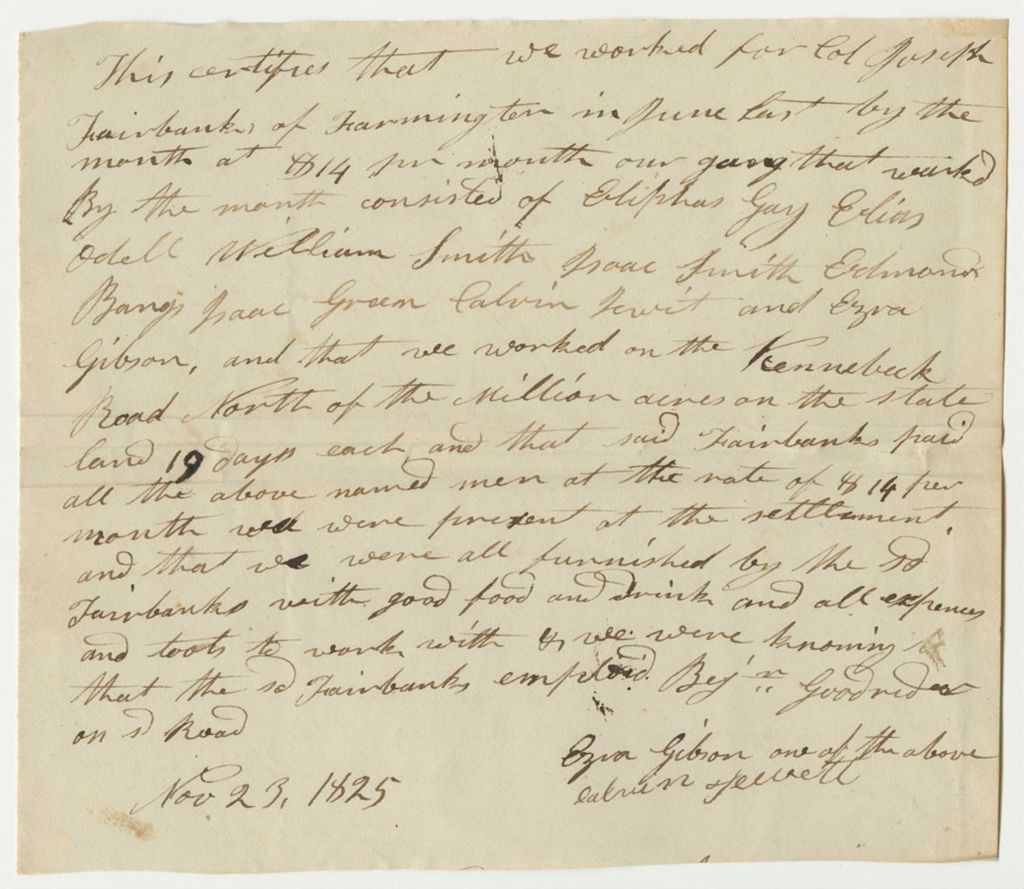 This certifies that we worked for Col Joseph
Fairbanks of Farmington in June last by the
month at $14 pr month our gang that worked
By the month consisted of Eliphas Gay Elias
Odell William Smith Isaac Smith Edmond
Bangs Isaac Green Calvin Jewit and Ezra
Gibson, and that we worked on the Kennebeck
Road North of the Million acres on the state
land 19 days each and that said Fairbanks paid
all the above named men at the rate of $14 per
month we were present at the settlement,
and that we were all furnished by the sd
Fairbanks with good food and drink and all expences
and tools to work with & we were knowing
that the sd Fairbanks emploid Bejn Goodrid
on sd Road
Ezra Gibson one of the above
Calvin Jewett
Nov 23, 1825